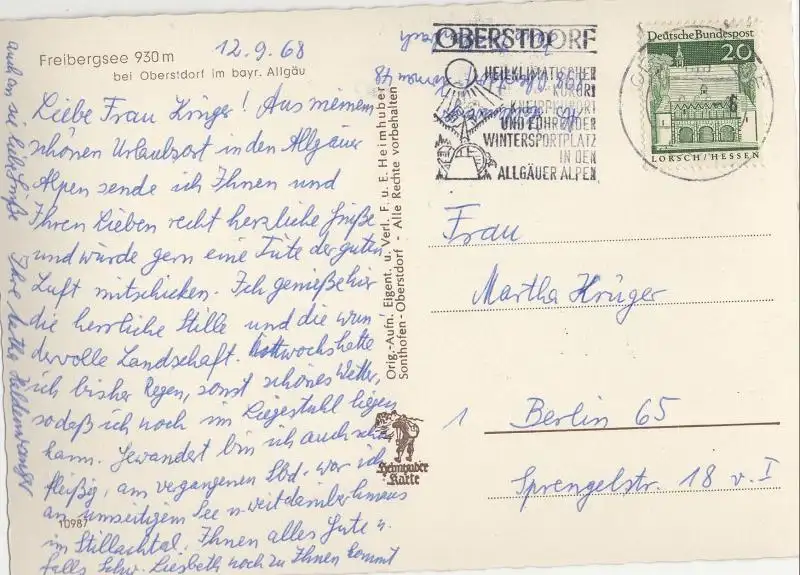 Freibergsee 930 m
bei Oberstdorf im bayr. Allgäu
12.9.68
Liebe Frau Krüger! Aus meinem
schönen Urlaubsort in den Allgäuer
Alpen sende ich Ihnen und
Ihren Lieben recht herzliche Grüße
und würde gern eine Tüte der guten
Luft mitschicken. Ich genieße hier
die herrliche Stille und die wun
dervolle Landschaft. hatte
ich bisher Regen, sonst schönes Wetter,
sodaß ich noch im Liegestuhl liegen
kann. Gewandert bin ich auch schon
fleißig, am vegangenen Sbd. war ich
an umseitigem See u. weit darüber hinaus
im Stillachtal. Ihnen alles Gute u.
falls Schw. Liesbeth noch zu Ihnen kommt
auch an sie liebe Grüße Ihre
10987
Orig.-Aufn. Eigent. u. Verl. F. u. E. Heimhuber
Sonthofen-Oberstdorf - Alle Rechte vorbehalten
Heimhuber
Karte
OBERSTDORF
HEILKLIMATISCHER
KURORT
KNEIPPKURORT
UND FÜHRENDER
WINTERSPORTPLATZ
IN DEN
ALLGÄUER ALPEN
Deutsche Bundespost
20
LORSCH/HESSEN
Frau
Martha Krüger
1 Berlin 65
Sprengelstr. 18 v. I